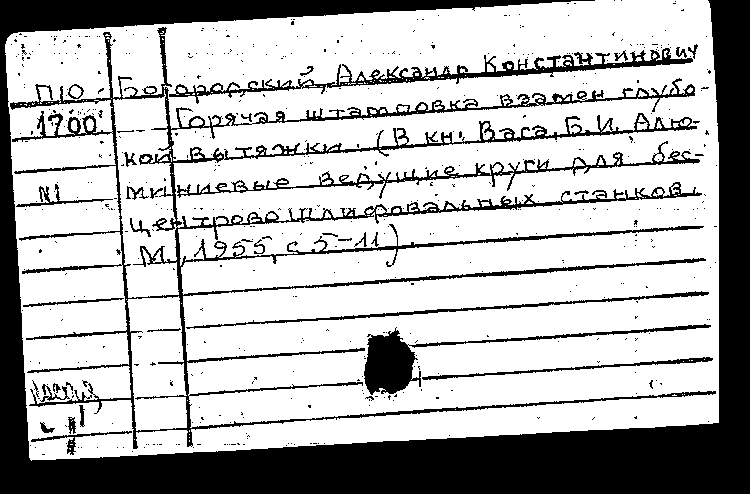 П10- Богородский, Александр Константинович
1700 Горячая штамповка взамен глубо-
кой вытяжки. (В кн: Васа, Б.И. Алю-
N1 миниевые ведущие круги для бес-
центровошлифовальных станков.
М., 1955, с. 5-11).